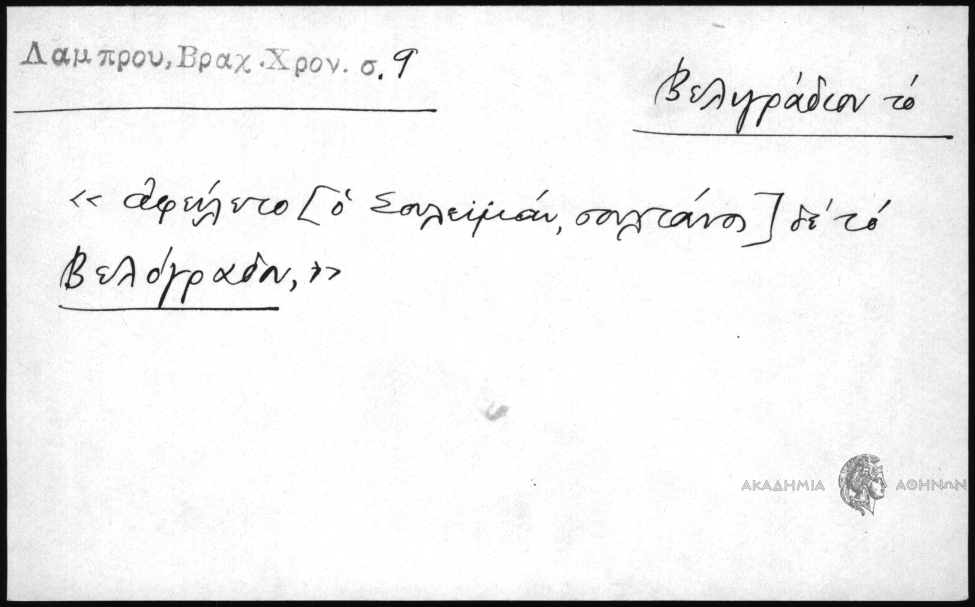 Λαμπρου, Βραχ. Χρον. σ. 9
Βελιγράδιον τό
« ἀφείλετο [ὁ Σουλεϊμάν, σουλτάνος] δέ τό
Βελόγραδον, »
ΑΚΑΔΗΜΙΑ ΑΘΗΝΩΝ